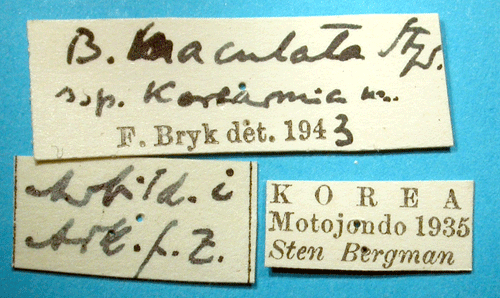 B. maculata Stgr.
ssp. Koreamnia m.
F. Bryk det. 1943
Avbild. i
Ark. f. Z.
K O R E A
Motojondo 1935
Sten Bergman